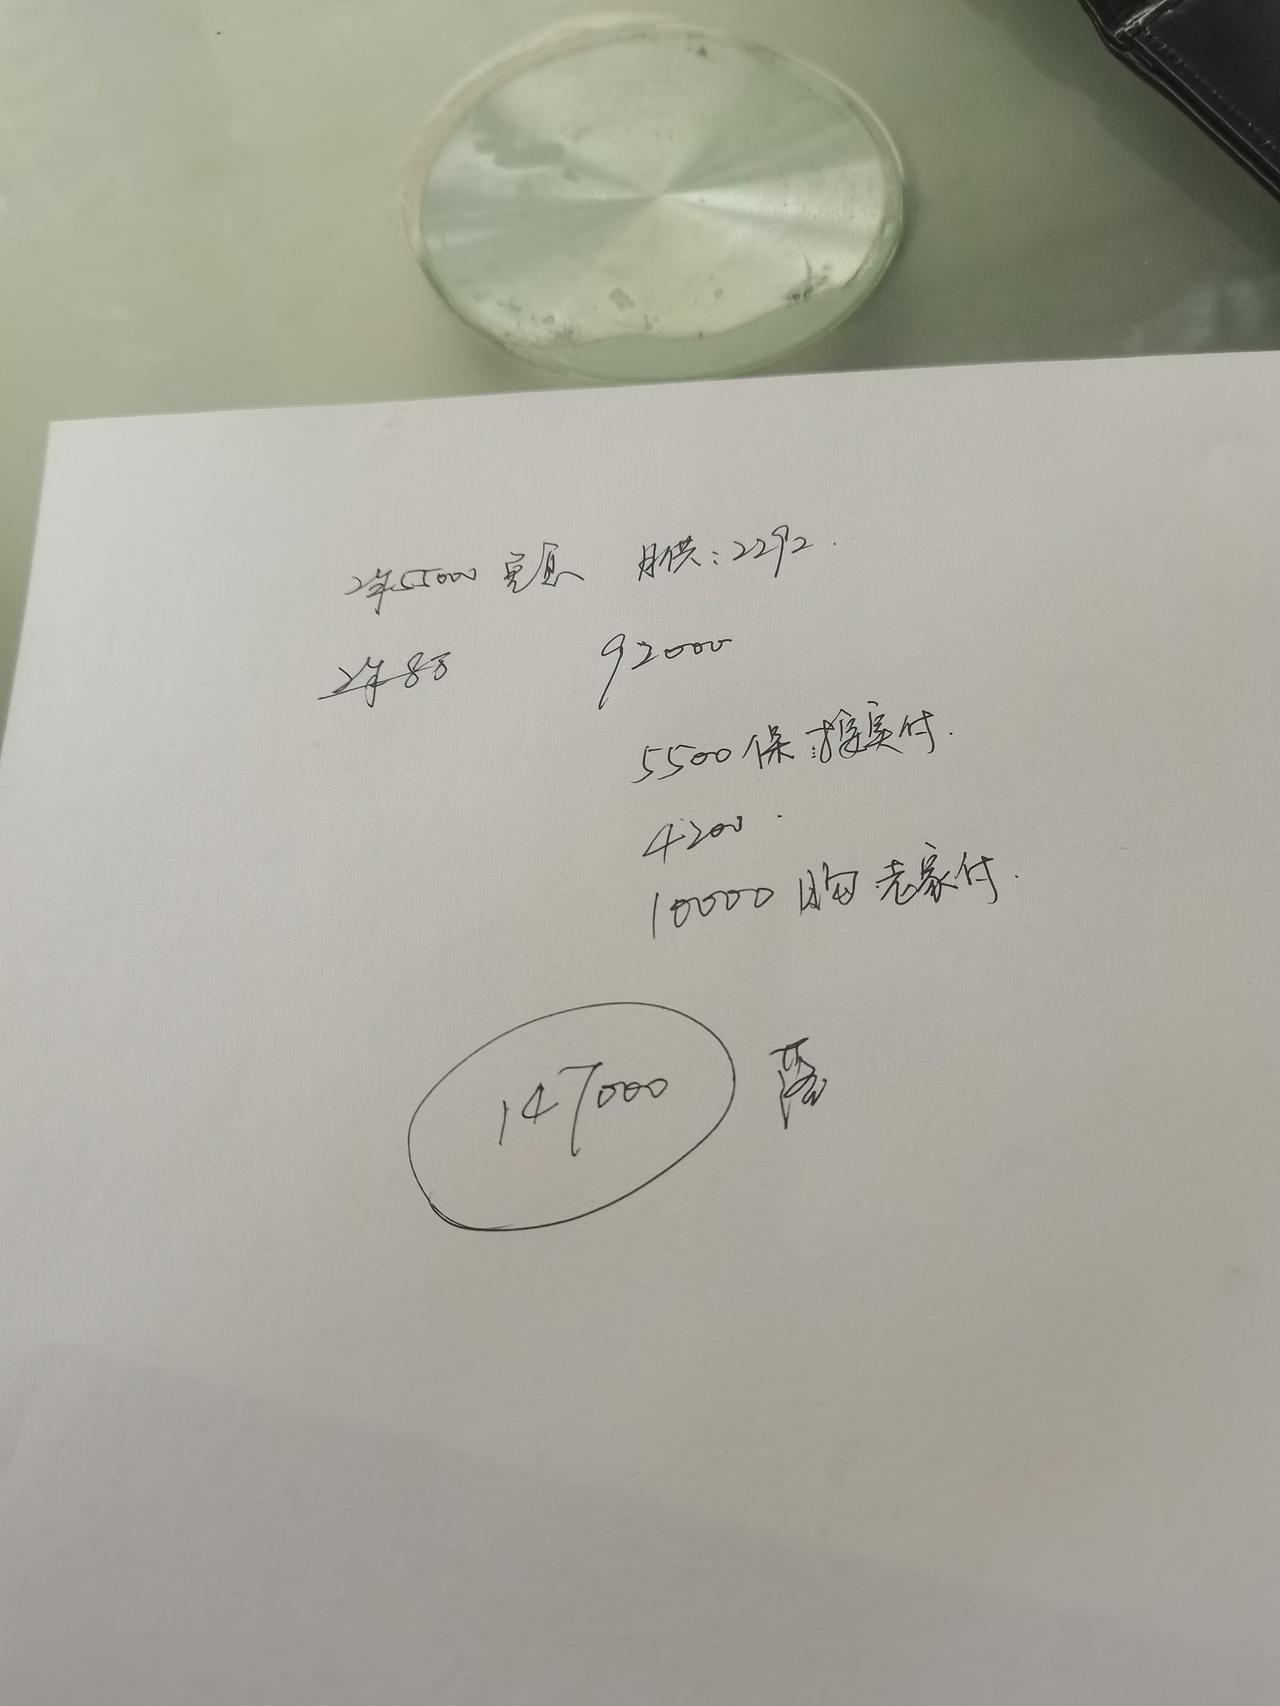 2年55000 免息 月供:2292.
2年8万 92000
5500保 按实付.
4200.
10000 购 老家付.
147000 落